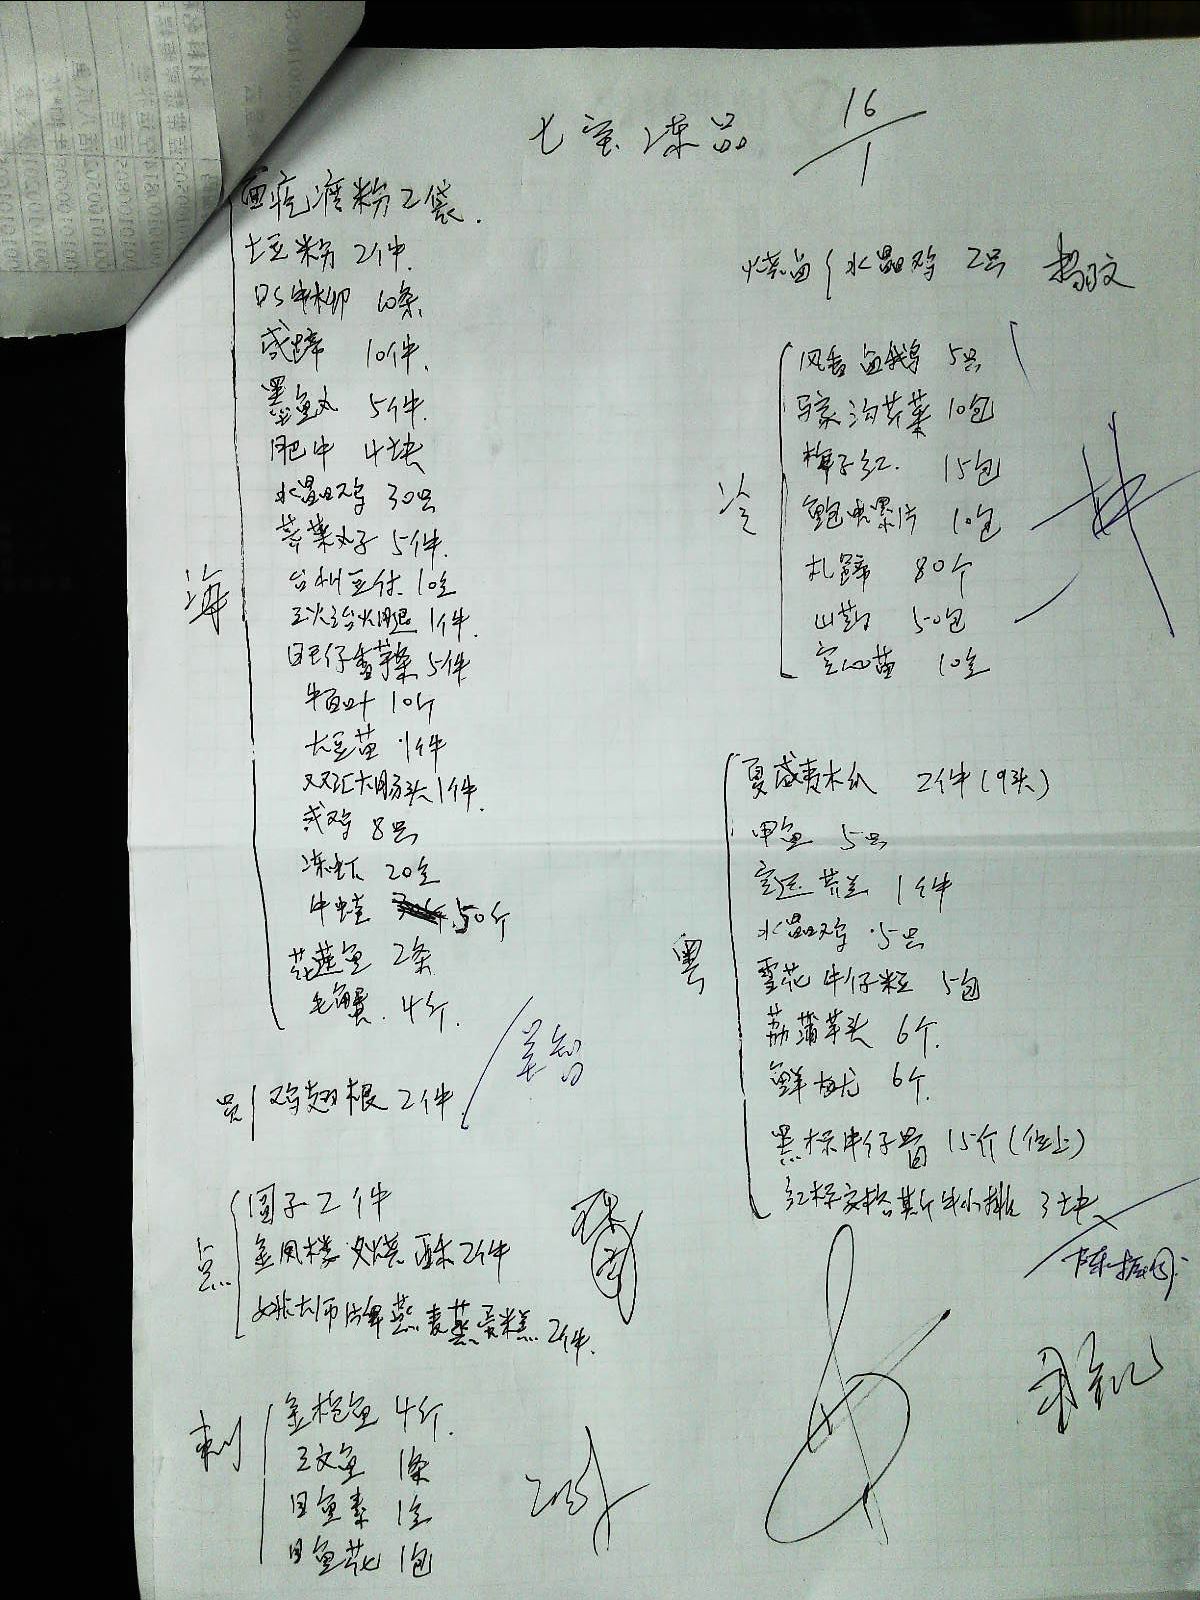 七宝冻品 16/1
面疙瘩粉 2袋.
土豆粉 2件.
牛柳 10条
咸蹄 10件.
墨鱼丸 5件.
肥牛 4块
水晶鸡 30只
荠菜丸子 5件.
台州豆付 10盒
火腿 1件.
旺仔香芋条 5件
牛百叶 10斤
大豆苗 1件
双汇大肠头 1件.
咸鸡 8只
冻虾 20盒
牛蛙 50斤
花莲鱼 2条
毛蟹. 4斤.
海
员 鸡翅根 2件
姜智
点
圆子 2件
金凤楼叉烧酥 2件
姚大师牌燕麦蒸蛋糕 2件.
刺
金枪鱼 4斤.
三文鱼 1条
目鱼素 1盒
目鱼花 1包
烧卤 水晶鸡 2只 杨文
冷
风香卤鹅 5只
马家沟芹菜 10包
梅子红. 15包
鲍鱼螺片 10包
扎蹄 80个
山药 50包
空心苗 10盒
粤
夏盛 2件(9头)
甲鱼 5只
空运芥兰 1件
水晶鸡 5只
雪花牛仔粒 5包
荔蒲芋头 6个.
鲜 6个.
黑标牛仔骨 15斤(位上)
红标安格斯牛小排 3块